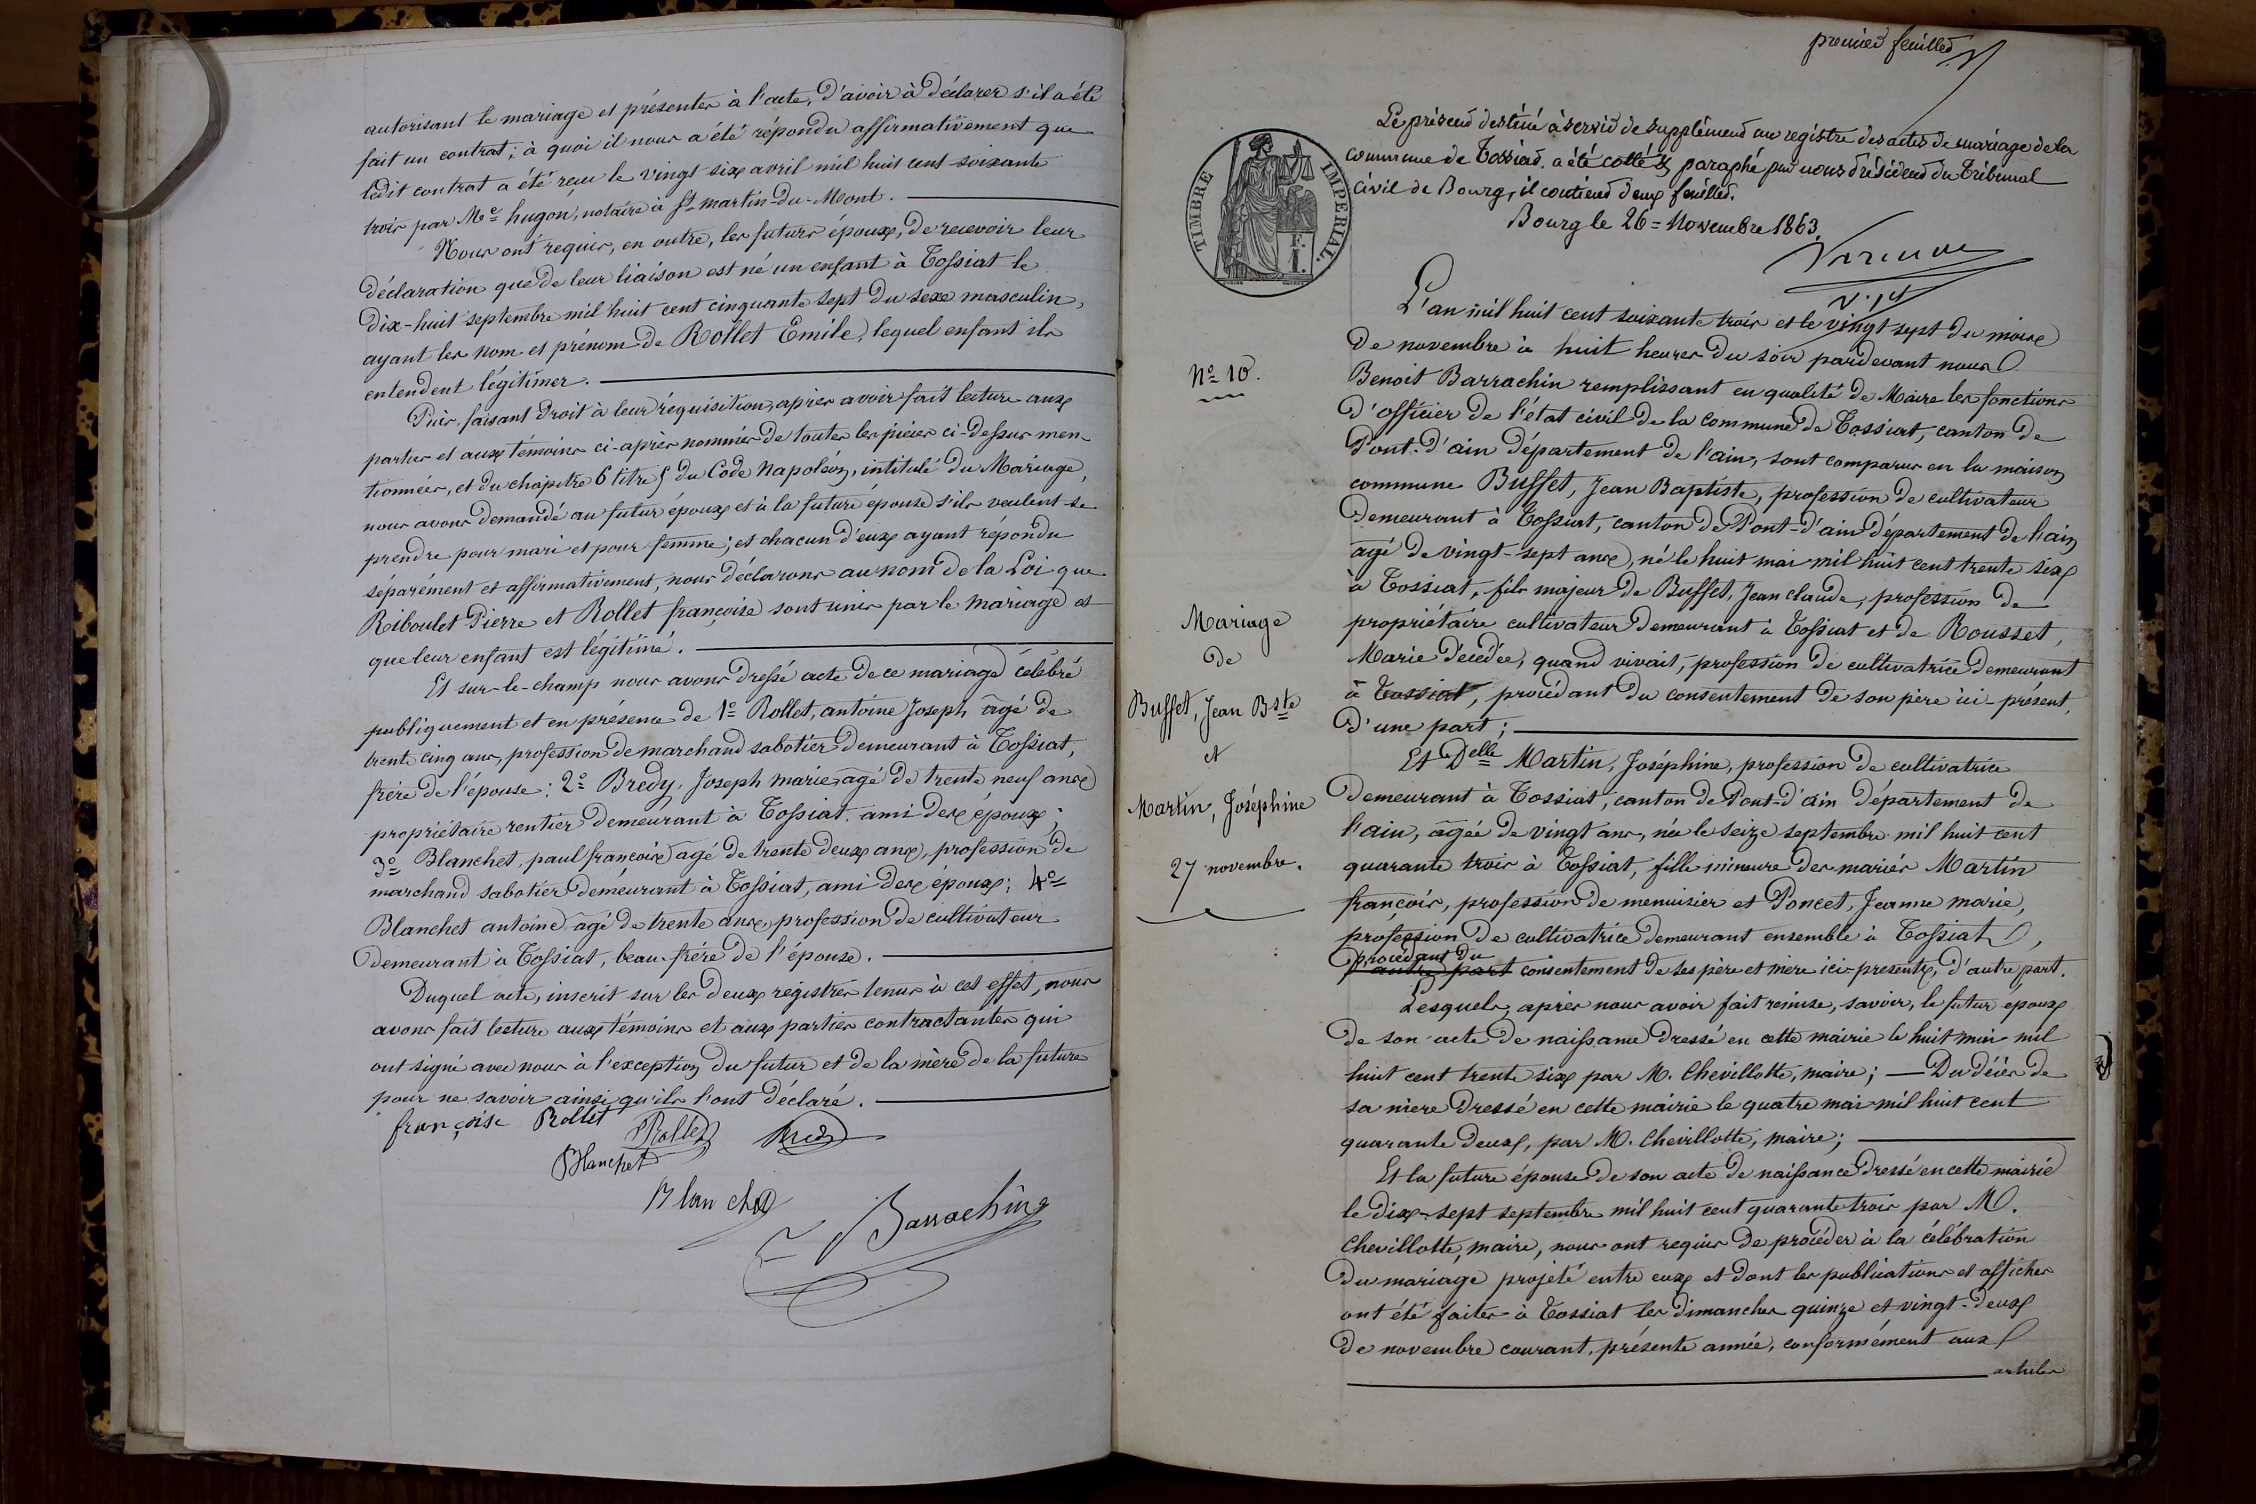 autorisant le mariage et présenter à l'acte, d'avoir à déclarer s'il a été
fait un contrat; à quoi il nous a été répondu affirmativement que
ledit contrat a été reçu le vingt six avril mil huit cent soixante
trois par Me hugon, notaire à St martin-du-Mont.
Nous ont requis, en outre, les futurs époux, de recevoir leur
déclaration que de leur liaison est né un enfant à Tossiat le
dix-huit septembre mil huit cent cinquante sept du sexe masculin,
ayant les nom et prénom de Rollet Emile, lequel enfant ils
entendent légitimer.
Puis, faisant droit à leur réquisition, après avoir fait lecture aux
parties et aux témoins ci-après nommés de toutes les pièces ci-dessus men-
tionnées, et du chapitre 6 titre 5 du Code Napoléon, intitulé du Mariage,
nous avons demandé au futur époux et à la future épouse s'ils veulent se
prendre pour mari et pour femme; et chacun d'eux ayant répondu
séparément et affirmativement, nous déclarons au nom de la Loi que
Riboulet Pierre et Rollet françoise sont unis par le mariage et
que leur enfant est légitimé.
Et sur-le-champ nous avons dressé acte de ce mariage célébré
publiquement et en présence de 1o Rollet, antoine Joseph âgé de
trente cinq ans, profession de marchand sabotier demeurant à Tossiat,
frère de l'épouse; 2o Bredy, Joseph marie, âgé de trente neuf ans
propriétaire rentier demeurant à Tossiat. ami des époux;
3o Blanchet, paul françois âgé de trente deux ans, profession de
marchand sabotier demeurant à Tossiat, ami des époux; 4o
Blanchet antoine âgé de trente ans, profession de cultivateur
demeurant à Tossiat, beau-frère de l'épouse.
Duquel acte, inscrit sur les deux registres tenus à cet effet, nous
avons fait lecture aux témoins et aux parties contractantes qui
ont signé avec nous à l'exception du futur et de la mère de la future
pour ne savoir ainsi qu'ils l'ont déclaré.
françoise Rollet Rollet
Blanchet
Blanchet
Barrachin
premier feuillet
Le présent destiné à servir de supplément au registre des actes de mariage de la
commune de Tossiat. a été cotté & paraphé par nous Président du Tribunal
civil de Bourg, il contient deux feuillets.
Bourg le 26 = Novembre 1863.
TIMBRE IMPERIAL.
F. I.
No 10.
Mariage
de
Buffet, Jean Bste
et
Martin, Joséphine
27 novembre.
L'an mil huit cent soixante trois et le vingt sept du mois
de novembre à huit heures du soir pardevant nous
Benoit Barrachin remplissant en qualité de Maire les fonctions
d'officier de l'état civil de la commune de Tossiat, canton de
Pont-d'ain département de l'ain, sont comparus en la maison
commune Buffet, Jean Baptiste, profession de cultivateur
demeurant à Tossiat, canton de Pont-d'ain département de l'ain
âgé de vingt-sept ans, né le huit mai mil huit cent trente six
à Tossiat, fils majeur de Buffet, Jean claude, profession de
propriétaire cultivateur demeurant à Tossiat et de Rousset,
Marie décédée, quand vivait, profession de cultivatrice demeurant
à Tossiat, procédant du consentement de son père ici présent,
d'une part;
Et Delle Martin, Joséphine, profession de cultivatrice
demeurant à Tossiat, canton de Pont-d'ain département de
l'ain, âgée de vingt ans, née le seize septembre mil huit cent
quarante trois à Tossiat, fille mineure des mariés Martin
françois, profession de menuisier et Poncet, Jeanne marie,
profession de cultivatrice demeurant ensemble à Tossiat,
procédant du
d'autre part consentement de ses père et mère ici presents, d'autre part.
Lesquels, après nous avoir fait remise, savoir, le futur epoux
de son acte de naissance dressé en cette mairie le huit mai mil
huit cent trente six par M. Chevillotte, maire; — Du décès de
sa mere dressé en cette mairie le quatre mai mil huit cent
quarante deux, par M. Chevillotte, maire;
Et la future épouse de son acte de naissance dressé en cette mairie
le dix-sept septembre mil huit cent quarante trois par M.
Chevillotte, maire, nous ont requis de procéder à la célébration
du mariage projeté entre eux et dont les publications et affiches
ont été faites à Tossiat les dimanches quinze et vingt-deux
de novembre courant, présente année, conformément aux
articles